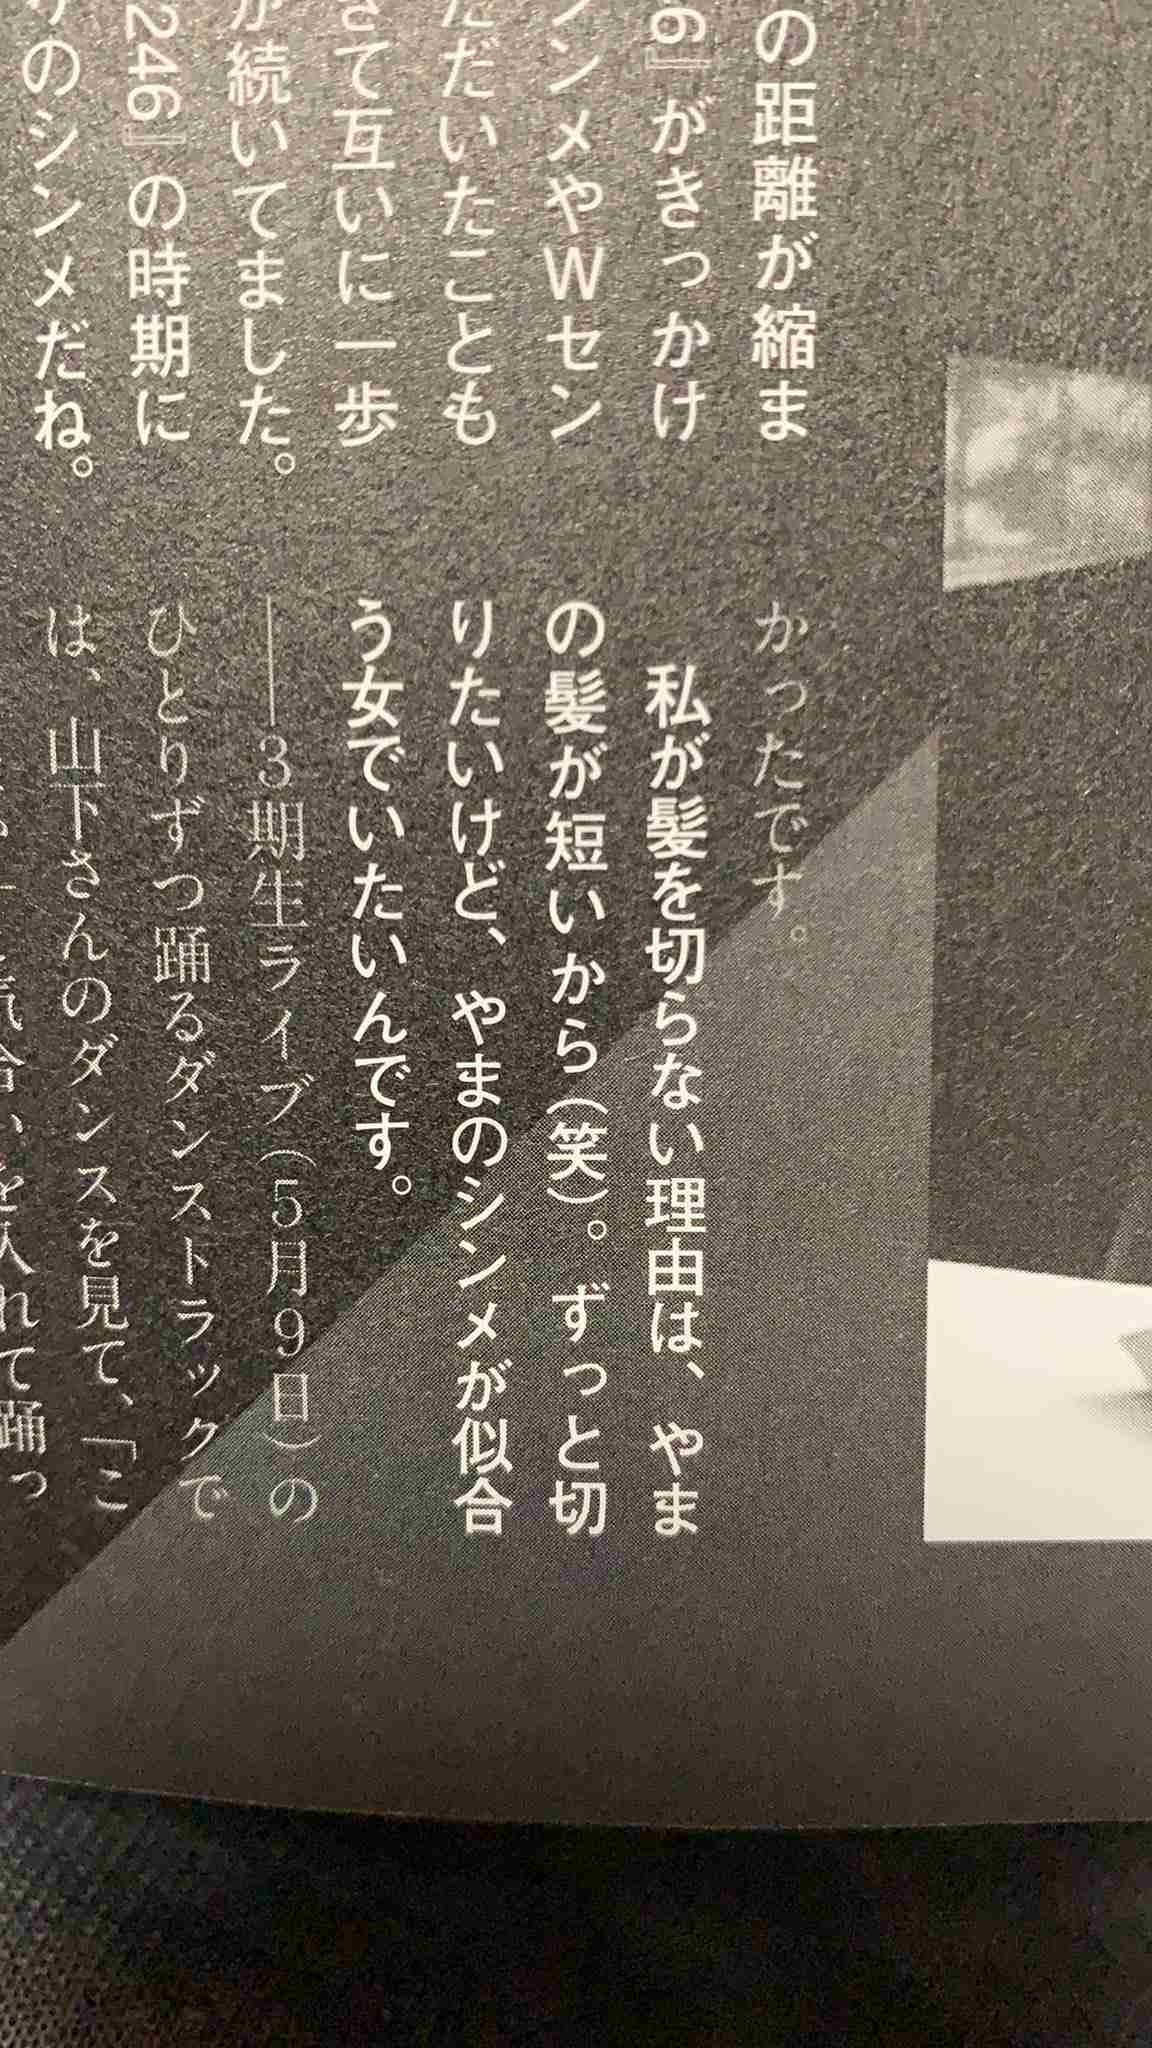 の距離が縮ま
6』がきっかけ
ンメやWセン
ただいたことも
さて互いに一歩
が続いてました。
246』の時期に
りのシンメだね。
かったです。
私が髪を切らない理由は、やま
の髪が短いから(笑)。ずっと切
りたいけど、やまのシンメが似合
う女でいたいんです。
――3期生ライブ(5月9日)の
ひとりずつ踊るダンストラックで
は、山下さんのダンスを見て、「こ
気合いを入れて踊っ